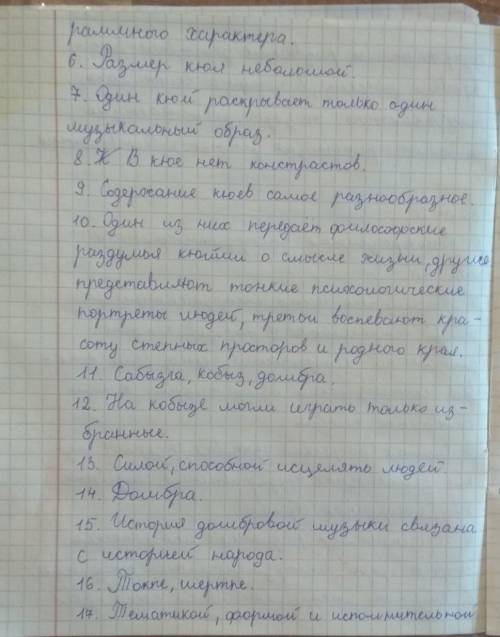 раммного характера.
6. Размер кюя небольшой.
7. Один кюй раскрывает только один
музыкальный образ.
8. В кюе нет констрастов.
9. Содержание кюев самое разнообразное.
10. Один из них передаёт философские
раздумья кюйши о смысле жизни, другие
представляют тонкие психологические
портреты людей, третьи воспевают кра-
соту степных просторов и родного края.
11. Сабызга, кобыз, домбра.
12. На кобызе могли играть только из-
бранные.
13. Силой, способной исцелять людей
14. Домбра.
15. История домбровой музыки связана
с историей народа.
16. Токпе, шертпе.
17. Тематикой, формой и исполнительной